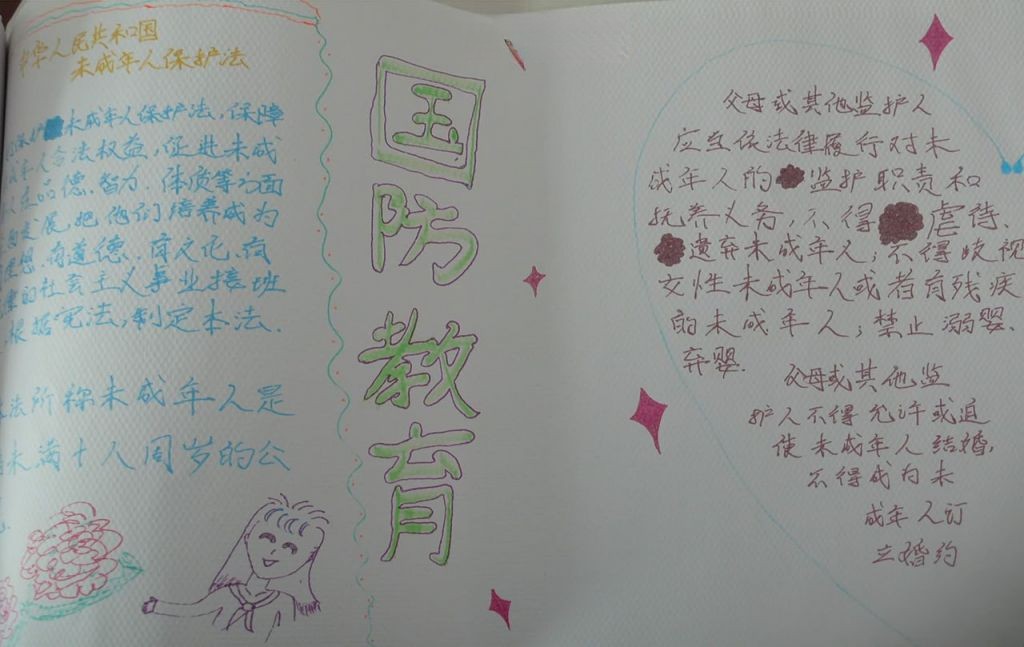 中华人民共和国
未成年人保护法
保护未成年人保护法,保障
年人合法权益,促进未成
在品德、智力、体质等方面
发展,把他们培养成为
理想、有道德、有文化、有
的社会主义事业接班
根据宪法,制定本法.
法所称未成年人是
未满十八周岁的公
国防教育
父母或其他监护人
应当依法律履行对未
成年人的监护职责和
抚养义务,不得虐待、
遗弃未成年人;不得歧视
女性未成年人或者有残疾
的未成年人;禁止溺婴、
弃婴.
父母或其他监
护人不得允许或迫
使未成年人结婚,
不得成为未
成年人订
立婚约